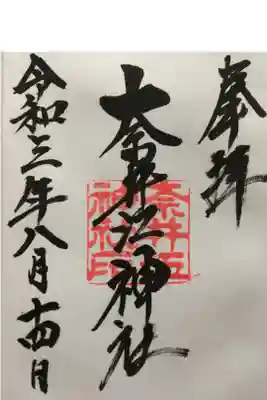 奉拝
奈井江神社
奈井江
神社印
令和三年八月十四日